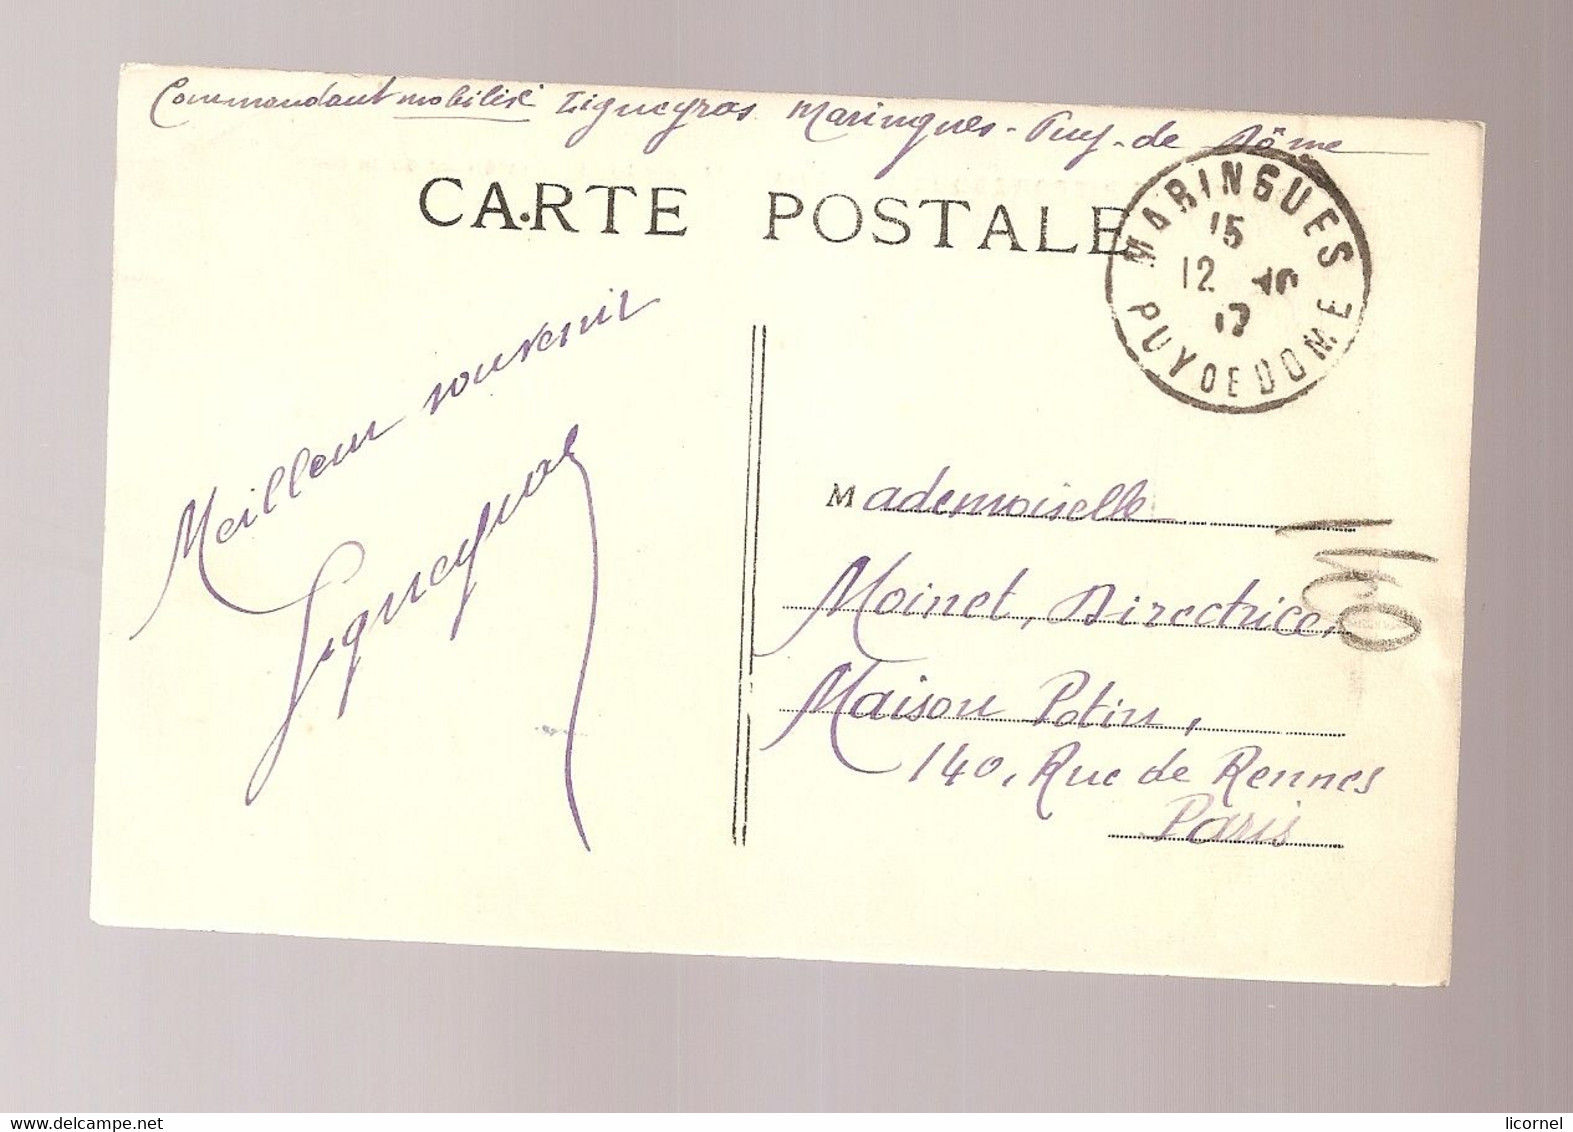 Commandant mobilisé Ligueyras Maringues - Puy-de Dôme
CARTE POSTALE
MARINGUES
15
12
PUY DE DOME
Meilleur souvenir
Ligueyras
Mademoiselle
Moinet, Directrice,
Maison Potin,
140, Rue de Rennes
Paris
160
licornel
www.delcampe.net